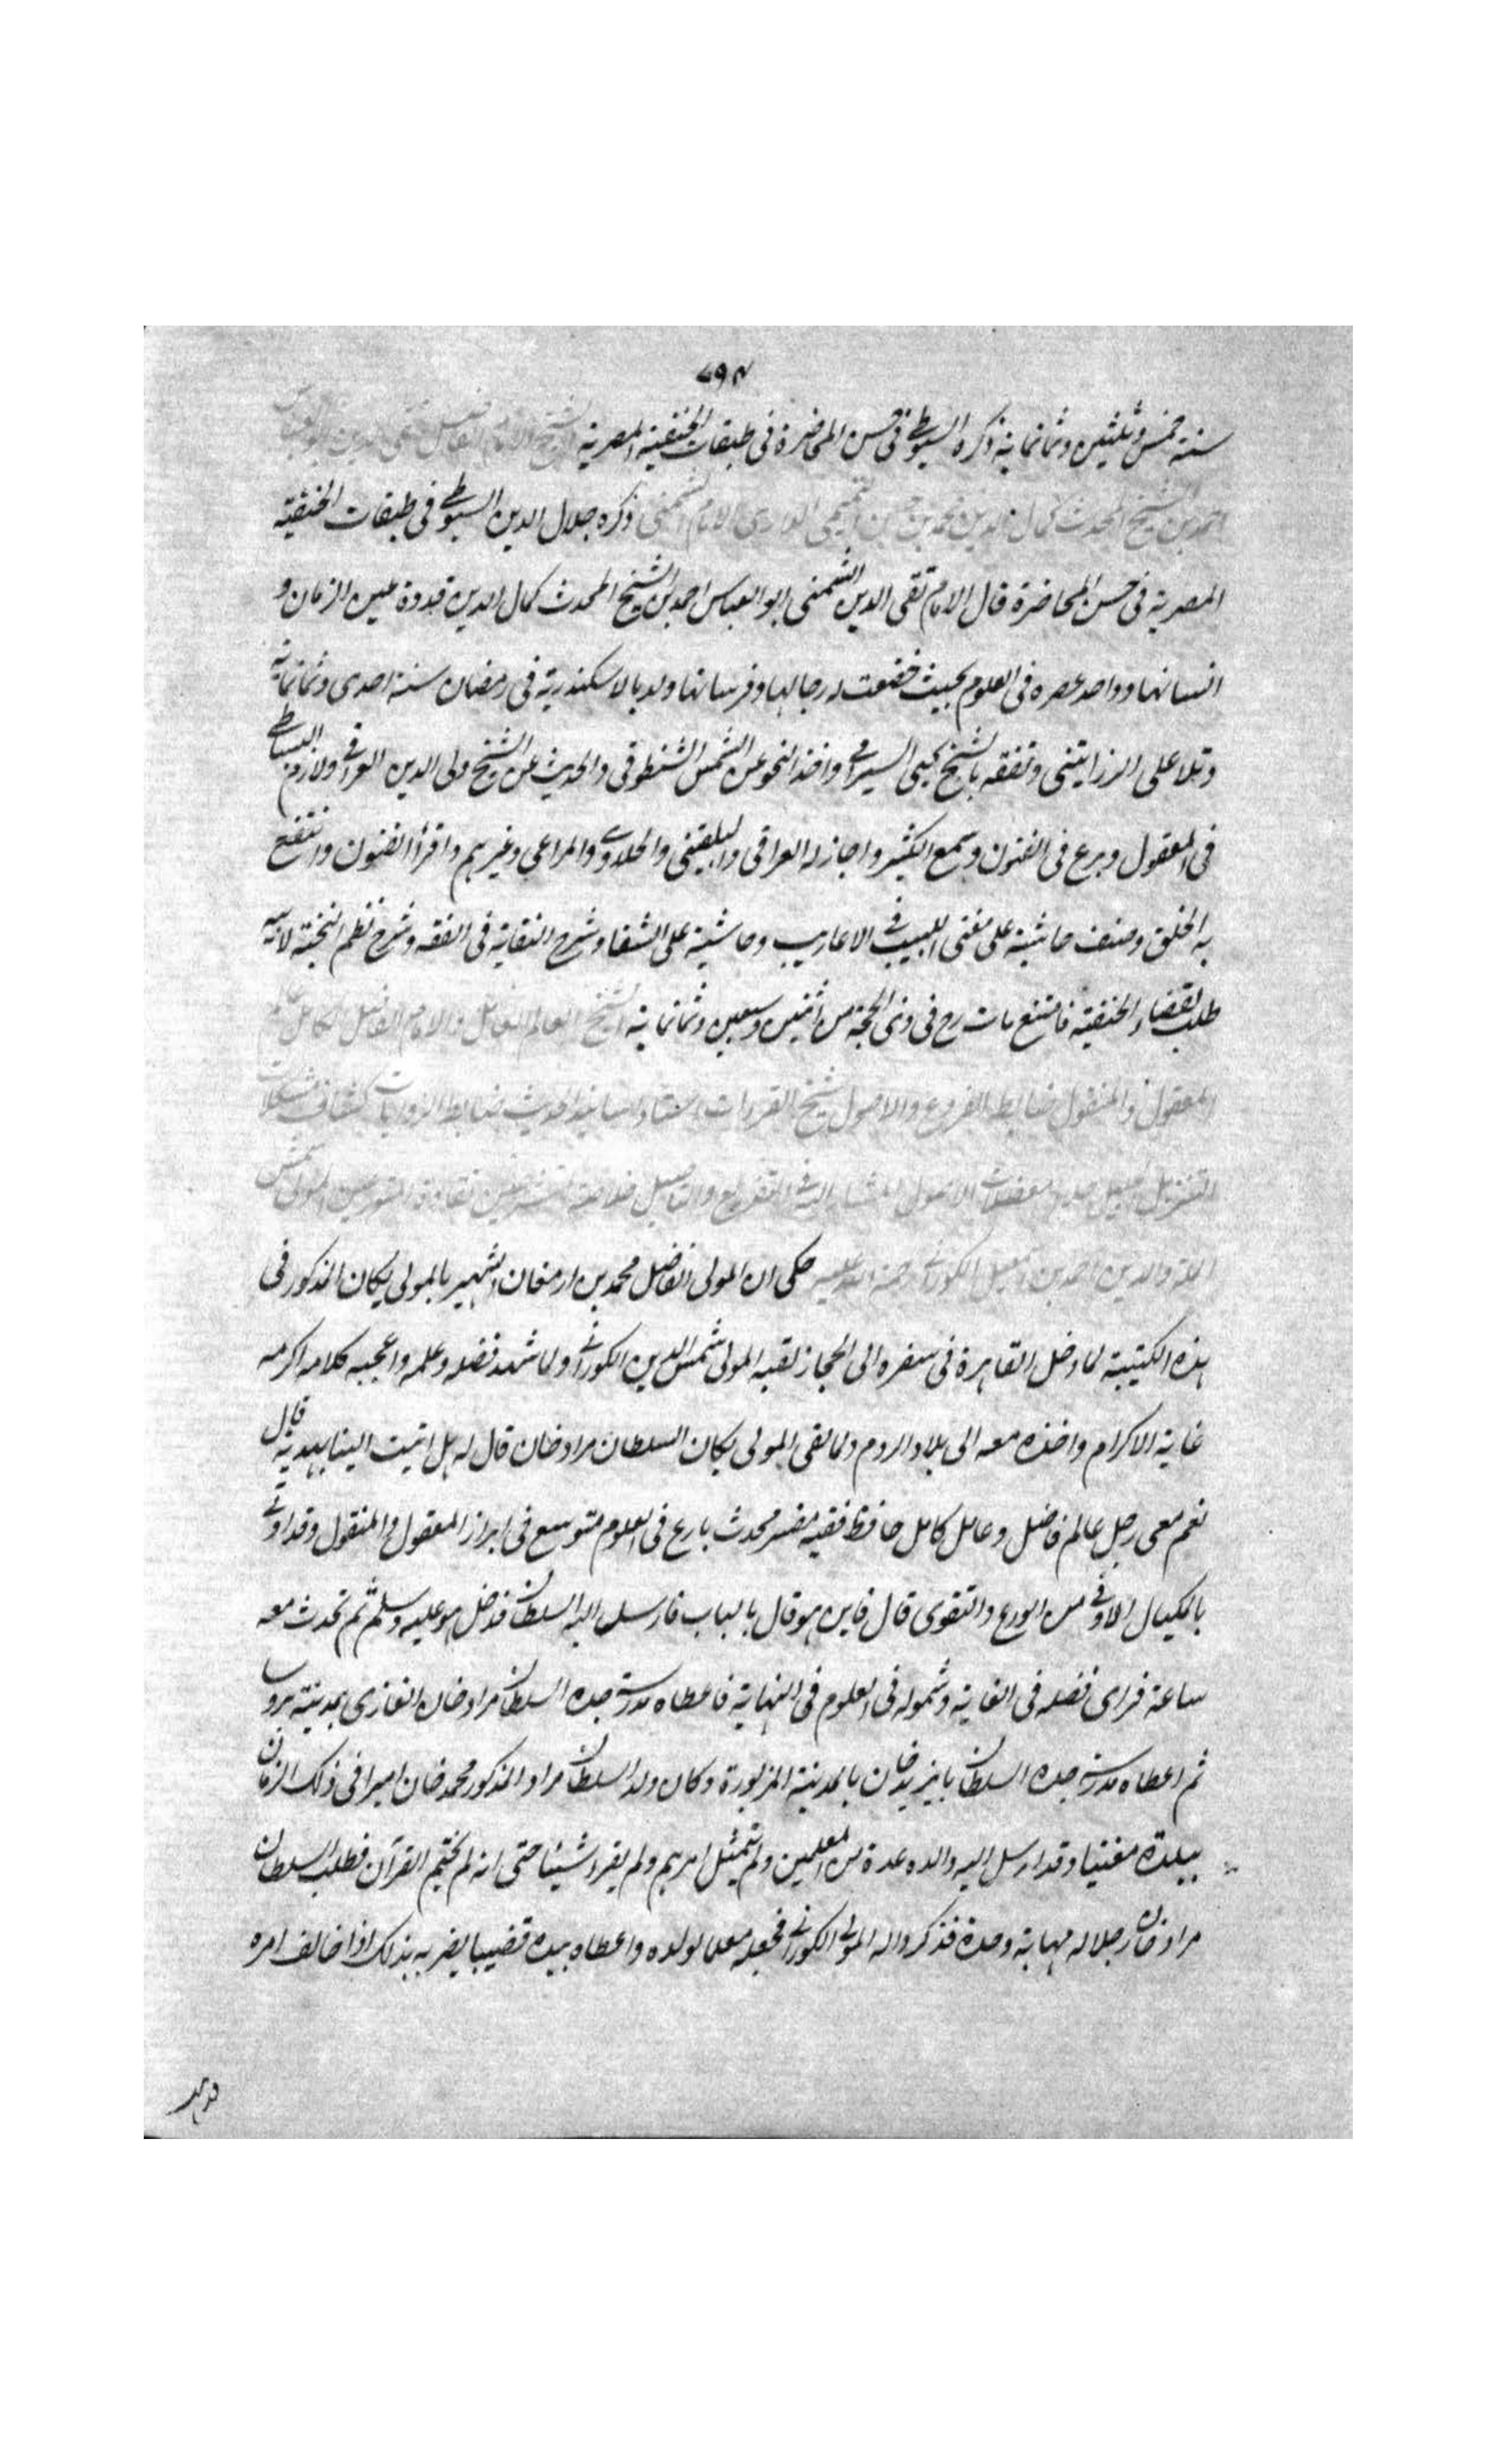 ٧٩٣
سنة خمس وثلثين وثمانماية ذكره السيوطى فى حسن المحاضرة فى طبقات الحنفية المصرية الشيخ الامام الفاضل تقى الدين ابو العباس
احمد بن الشيخ المحدث كمال الدين محمد بن حسن التميمى الدارى الامام الشمنى ذكره جلال الدين السيوطى فى طبقات الحنفية
المصرية فى حسن المحاضرة قال الامام تقى الدين الشمنى ابو العباس احمد بن الشيخ المحدث كمال الدين قدوة عين الزمان و
انسانها وواحد عصره فى العلوم بحيث خضعت له رجالها وفرسانها ولد بالاسكندرية فى رمضان سنة احدى وثمانماية
وتلا على الزراتيتى وتفقه بالشيخ يحيى السيرامى واخذ النحو عن الشمس الشنطوفى والحديث عن الشيخ ولى الدين العراقى ولازم البساطى
فى المعقول وبرع فى الفنون وسمع الكثير واجاز له العراقى والبلقينى والحلاوى والمراغى وغيرهم واقرأ الفنون وانتفع
به الخلق وصنف حاشية على مغنى اللبيب فى الاعاريب وحاشية على الشفا وشرح النقاية فى الفقه وشرح نظم النخبة لابيه
طلب لقضاء الحنفية فامتنع مات رح فى ذى الحجة من اثنين وسبعين وثمانماية الشيخ العالم العامل والامام الفاضل الكامل
المعقول والمنقول ضابط الفروع والاصول شيخ القراءات استاد اسانيد الحديث ضابط الروايات كشاف مشكلات
التنزيل معضلات الاصول المشار اليه فى التفريع والتاصيل المولى شمس
الملة والدين احمد بن اسمعيل الكورانى رحمة الله عليه حكى ان المولى الفاضل محمد بن ارمغان الشهير بالمولى يكان المذكور فى
هذه الكتيبة لما دخل القاهرة فى سفره الى الحجاز لقيه المولى شمس الدين الكورانى ولما شهد فضله وعلمه واعجبه كلامه اكرمه
غاية الاكرام واخذه معه الى بلاد الروم ولما لقى المولى يكان السلطان مراد خان قال له هل اتيت الينا بهدية قال
نعم معى رجل عالم فاضل وعامل كامل حافظ فقيه مفسر محدث بارع فى العلوم متوسع فى ابراز المعقول والمنقول وقد اوتى
بالكيال الاوفى من الورع والتقوى قال فاين هو قال بالباب فارسل اليه السلطان فدخل هو عليه وسلم ثم تحدث معه
ساعة فراى فضله فى الغاية وشموله فى العلوم فى النهاية فاعطاه مدرسة جده السلطان مراد خان الغازى بمدينة بروسا
ثم اعطاه مدرسة جده السلطان بايزيد خان بالمدينة المزبورة وكان ولد السلطان مراد المذكور محمد خان اميرا فى ذلك الزمان
ببلدة مغنيا وقد ارسل اليه والده عدة من المعلمين ولم يتمثل امرهم ولم يقرء شيئا حتى انه لم يختم القرآن فطلب السلطان
مراد خان رجلا له مهابة وحدة فذكروا له المولى الكورانى فجعله معلما لولده واعطاه بيده قضيبا يضربه بذلك اذا خالف امره